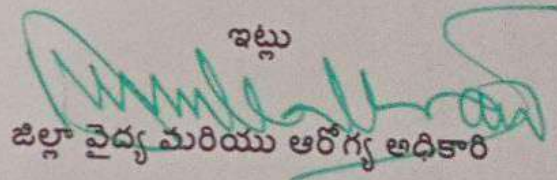 ఇట్లు
జిల్లా వైద్య మరియు ఆరోగ్య అధికారి